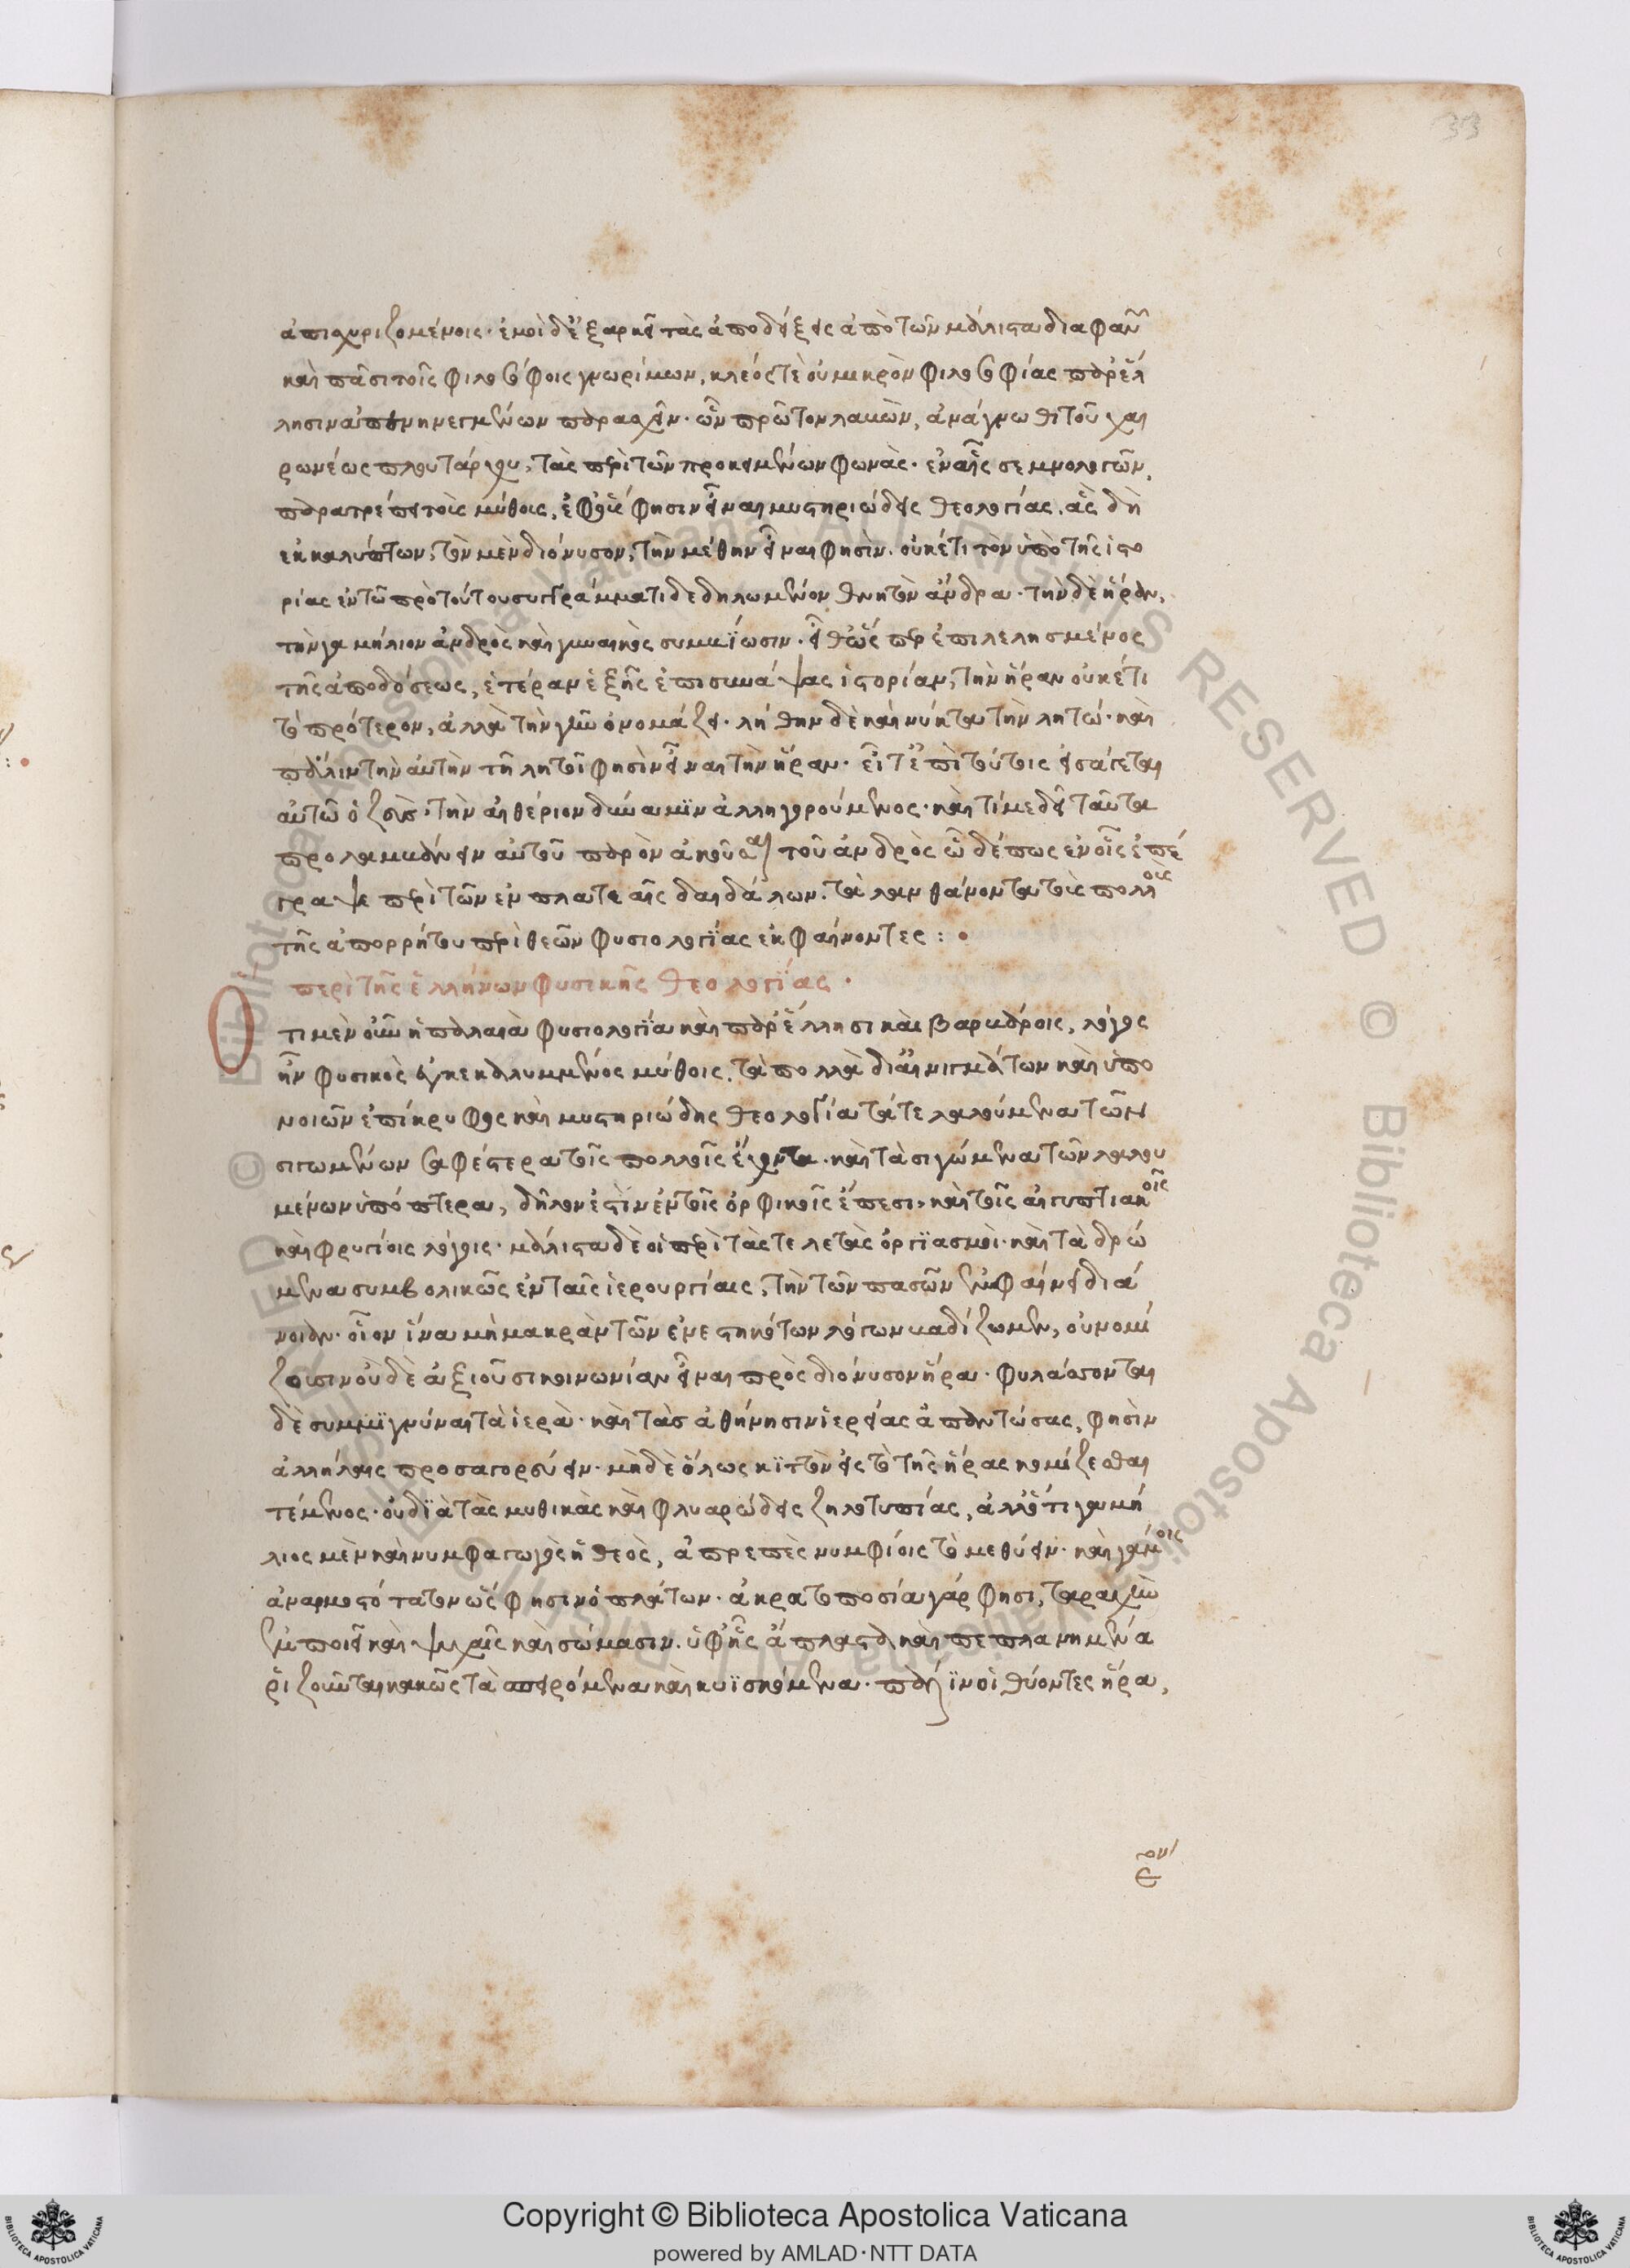 33
ἀπισχυριζομένοις· ἐμοὶ δ' ἐξαρκεῖ τὰς ἀποδείξεις ἀπὸ τῶν μάλιστα διαφανῶν
καὶ πᾶσι τοῖς φιλοσόφοις γνωρίμων, κλέος τὲ οὐ μικρὸν φιλοσοφίας παρ' ἕλ
λησιν ἀπενηνεγμένων παρασχεῖν· ὧν πρῶτον λαβὼν, ἀνάγνωθι τοῦ χαι
ρωνέως πλουτάρχου, τὰς περὶ τῶν προκειμένων φωνὰς· ἐν αἷς σεμνολογῶν,
παρατρέπει τοὺς μύθους, ἐφ' ἅς φησιν εἶναι μυστηριώδεις θεολογίας. ἃς δὴ
ἐκκαλύπτων, τὸν μὲν διόνυσον, τὴν μέθην εἶναι φησὶν. οὐκέτι τὸν ὑπὸ τῆς ἱστο
ρίας ἐν τῶ πρὸ τούτου συγγράμματι δεδηλωμένον θνητὸν ἄνδρα. τὴν δὲ ἥραν,
τὴν γαμήλιον ἀνδρὸς καὶ γυναικὸς συμβίωσιν. εἶθ' ὥσπερ ἐπιλελησμένος
τῆς ἀποδόσεως, ἑτέραν ἑξῆς ἐπισυνάψας ἱστορίαν, τὴν ἥραν οὐκέτι
τὸ πρότερον, ἀλλὰ τὴν γῆν ὀνομάζει. λήθην δὲ καὶ νύκτα τὴν λητώ. καὶ
πάλιν τὴν αὐτὴν τῆ λητοῖ φησὶν εἶναι τὴν ἥραν. εἶτ' ἐπὶ τούτοις εἰσάγεται
αὐτῶ ὁ ζεὺς· τὴν αἰθέριον δύναμϊν ἀλληγορούμενος. καὶ τί με δεῖ ταῦτα
προλαμβάνειν αὐτοῦ παρὸν ἀκοῦσαι τοῦ ἀνδρὸς ὧδέ πως ἐν οἷς ἐπέ
γραψε περὶ τῶν ἐν πλατεαῖς δαιδάλων. τὰ λανθάνοντα τοὺς πολλοὺς
τῆς ἀπορρήτου περὶ θεῶν φυσιολογΐας ἐκφαίνοντες:
περὶ τῆς ἑλλήνων φυσικῆς θεολογΐας.
Ὅτι μὲν οὖν ἡ παλαιὰ φυσιολογΐα καὶ παρ' ἕλλησι καὶ βαρβάροις, λόγος
ἦν φυσικὸς ἐγκεκαλυμμένος μύθοις. τὰ πολλὰ δι' αἰνιγμάτων καὶ ὑπο
νοιῶν ἐπίκρυφος καὶ μυστηριώδης θεολογΐα τά τε λαλούμενα τῶν
σιγωμένων σαφέστερα τοῖς πολλοῖς ἔχοντα. καὶ τὰ σιγώμενα τῶν λαλου
μένων ὑπόπτερα, δῆλον ἐστὶν ἐν τοῖς ὀρφικοῖς ἔπεσι, καὶ τοῖς αἰγυπτιακοῖς
καὶ φρυγίοις λόγοις. μάλιστα δὲ οἱ περὶ τὰς τελετὰς ὀργϊασμοὶ. καὶ τὰ δρώ
μενα συμβολικῶς ἐν ταῖς ἱερουργίαις, τὴν τῶν πασῶν ἐμφαίνει διά
νοιαν. οἷον ἵνα μὴ μακρὰν τῶν ἐνεστηκότων λόγων βαδίζωμεν, οὐ νομί
ζουσιν οὐδὲ ἀξιοῦσι κοινωνίαν εἶναι πρὸς διόνυσον ἥρα. φυλάσσονται
δὲ συμμϊγνύναι τὰ ἱερὰ. καὶ τὰσ ἀθήνησιν ἱερείας ἀπαντώσας, φησὶν
ἀλλήλαις προσαγορεύειν. μὴδὲ ὅλως κϊττὸν εἰς τὸ τῆς ἥρας κομίζεσθαι
τέμενος. οὐ διὰ τὰς μυθικὰς καὶ φλυαρώδεις ζηλοτυπίας, ἀλλ' ὅτι γαμή
λιος μὲν καὶ νυμφαγωγὸς ἡ θεὸς, ἀπρεπὲς νυμφίοις τὸ μεθύειν. καὶ γάμοις
ἀναρμοστότατον ὥς φησιν ὁ πλάτων. ἀκρατοποσία γάρ φησι, ταραχὴν
ἐμποιεῖ καὶ ψυχαῖς καὶ σώμασιν. ὑφ' ἧς ἄπλαστα καὶ πεπλανημένα
ῥιζοῦνται κακῶς τὰ σπειρόμενα καὶ κυϊσκόμενα. πάλϊν οἱ θύοντες ἥρα,
Copyright © Biblioteca Apostolica Vaticana
powered by AMLAD·NTT DATA